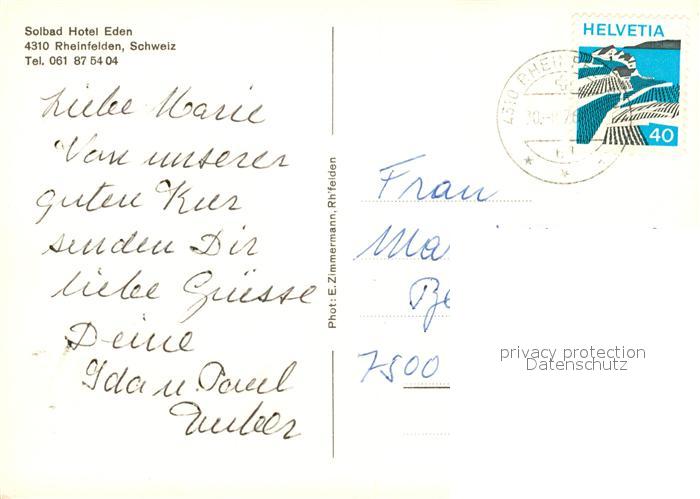 Solbad Hotel Eden
4310 Rheinfelden, Schweiz
Tel. 061 87 54 04
Liebe Marie
Von unserer
guten Kur
senden Dir
liebe Grüsse
Deine
Ida u. Paul
Phot: E. Zimmermann, Rh'felden
HELVETIA
40
4310 RHEINFELDEN
Frau
Ma
Be
7500
privacy protection
Datenschutz